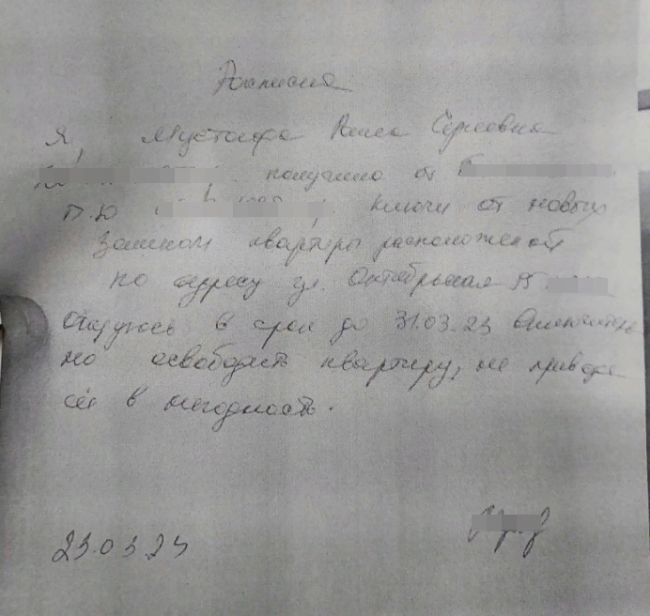 Расписка
Я, Мустафа Раиса Сергеевна
получила от
П.Ю ключи от новых
замков квартиры расположеной
по адресу ул. Октябрьская
Обязуюсь в срок до 31.03.23 включитель
но освободить квартиру, не приведя
её в негодность.
23.03.23